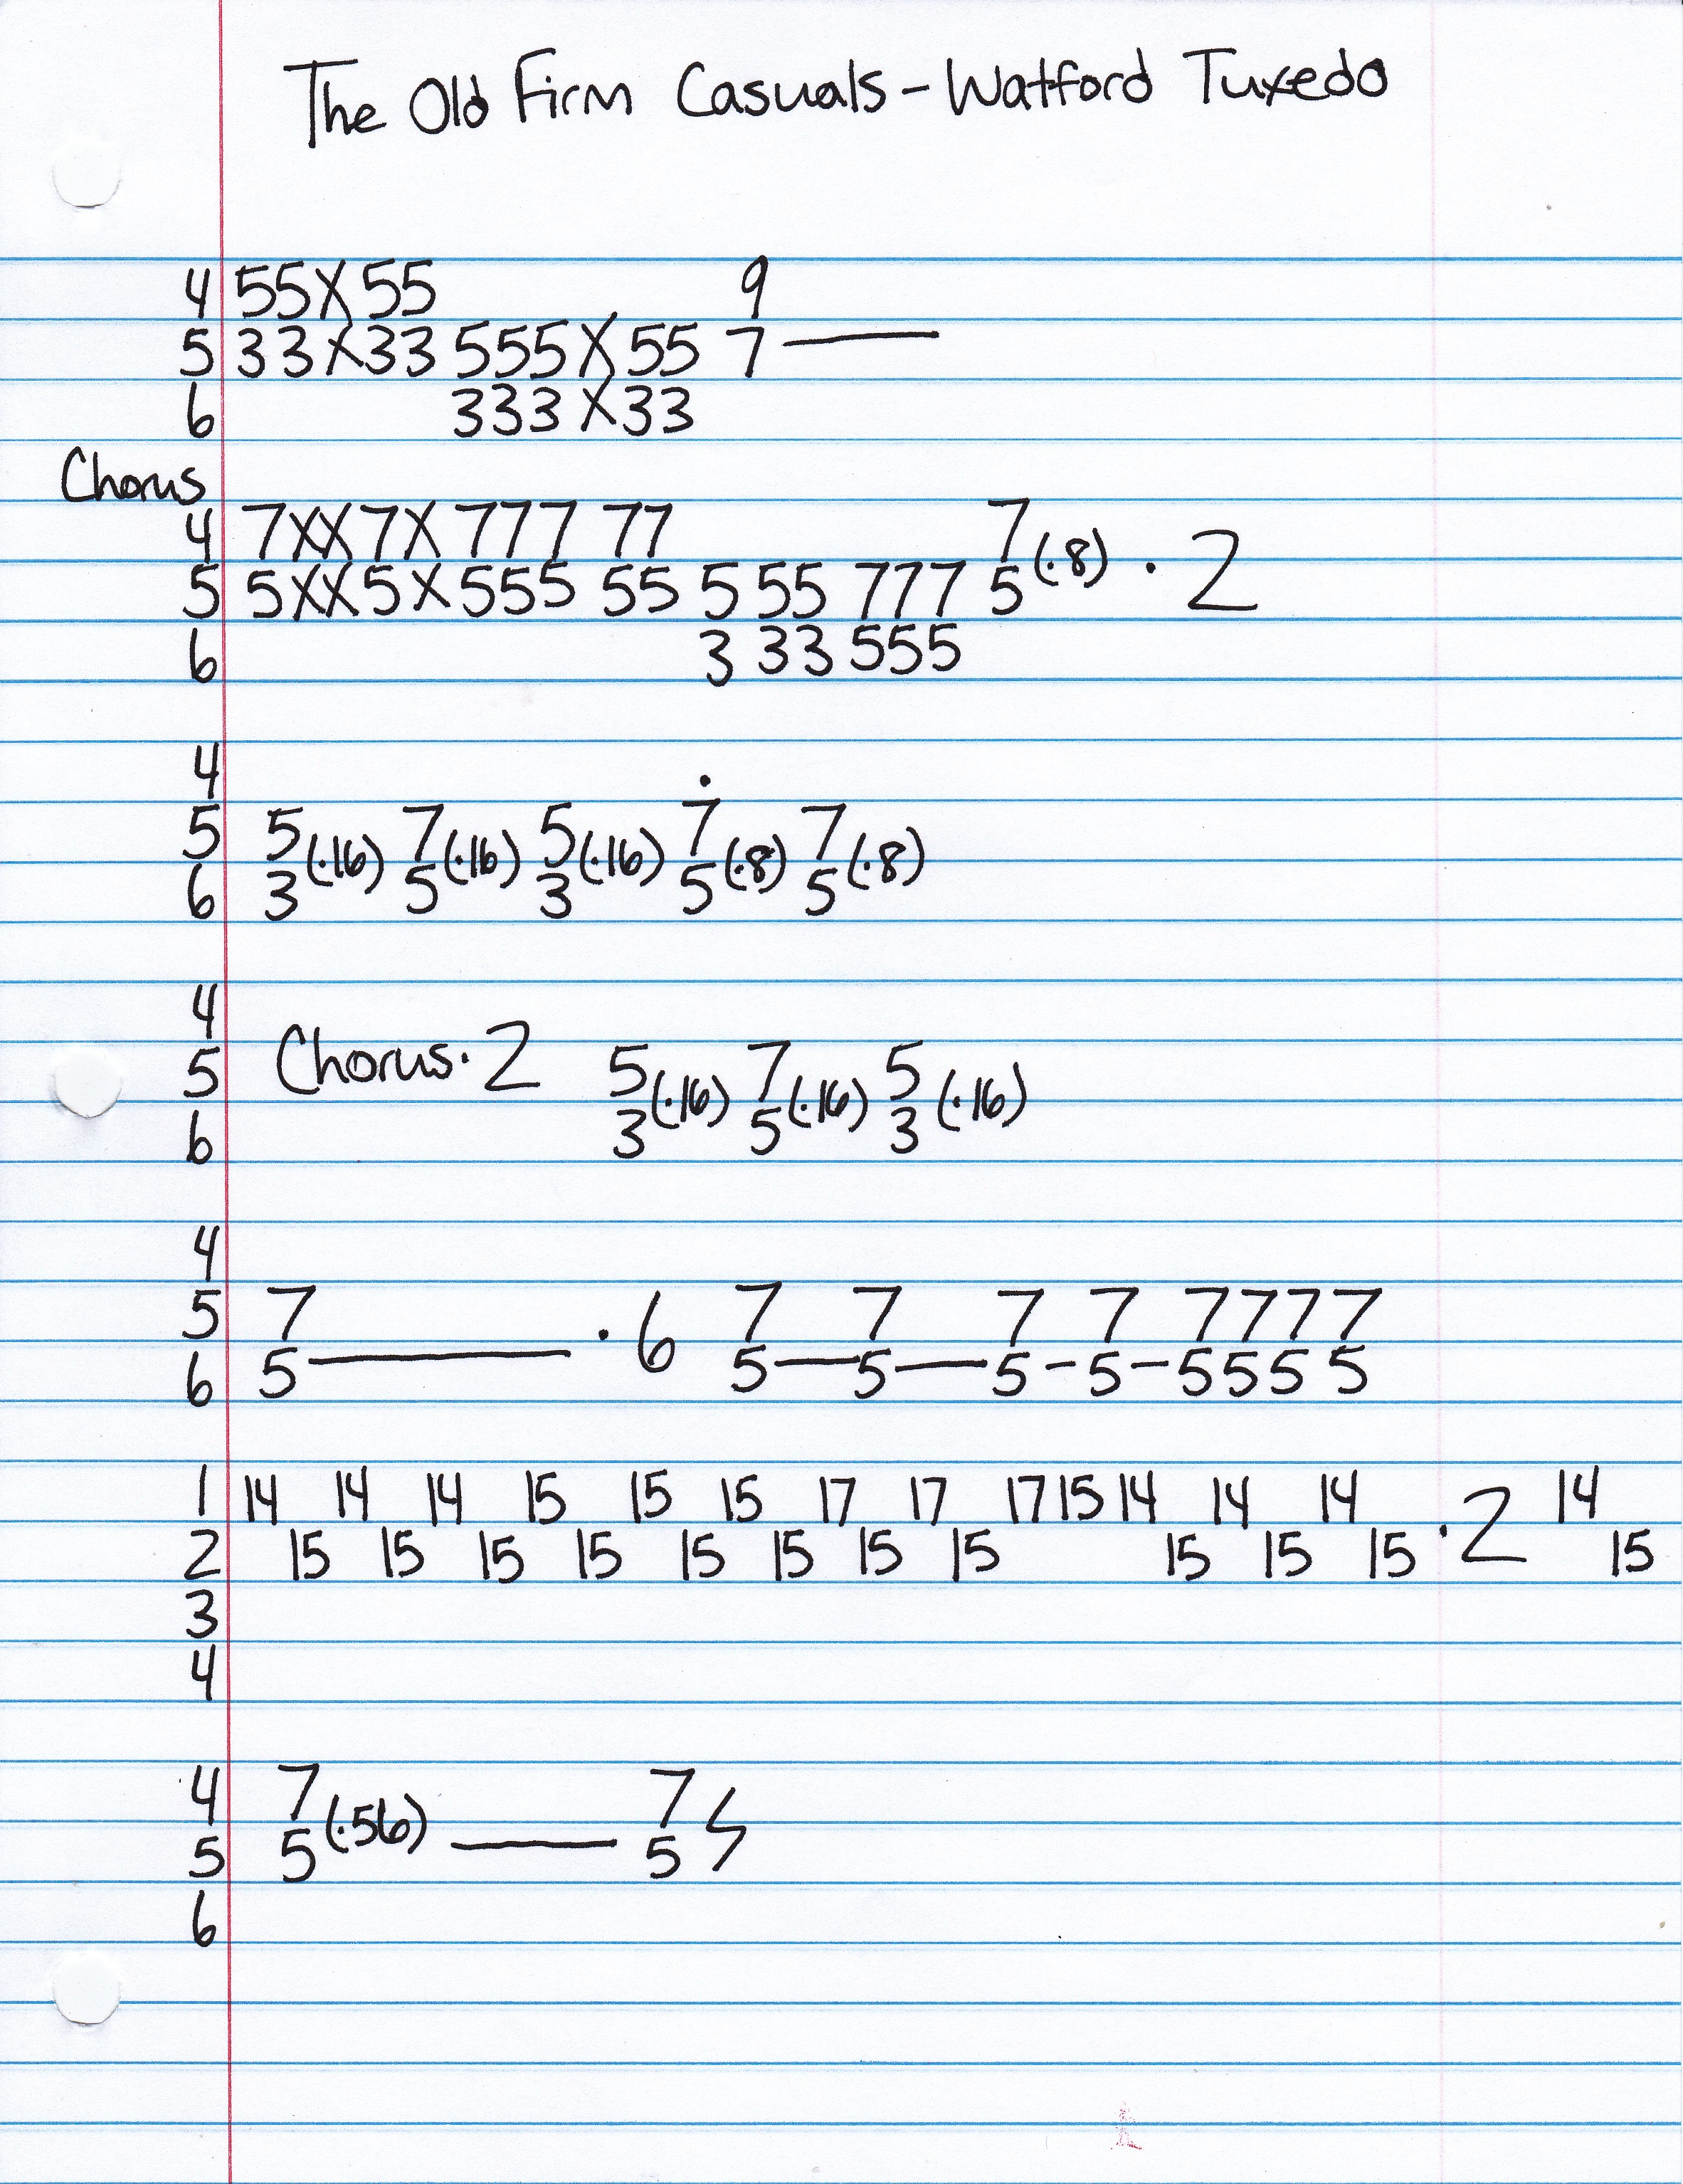 The Old Firm Casuals - Watford Tuxedo
4 55X55 9
5 33X33 555X55 7 —
6 333X33
Chorus
4 7XX7X 777 77 7
5 5XX5X 555 55 5 55 777 5 (·8) · 2
6 3 33 555
4 ·
5 5 (·16) 7 (·16) 5 (·16) 7 (·8) 7 (·8)
6 3 5 3 5 5
4
5 Chorus · 2 5 (·16) 7 (·16) 5 (·16)
6 3 5 3
4
5 7 · 6 7 7 7 7 7 7 7 7
6 5 — 5 — 5 — 5 - 5 - 5 5 5 5
1 14 14 14 15 15 15 17 17 17 15 14 14 14 · 2 14
2 15 15 15 15 15 15 15 15 15 15 15 15
3
4
4 7 (·56) — 7
5 5 5
6